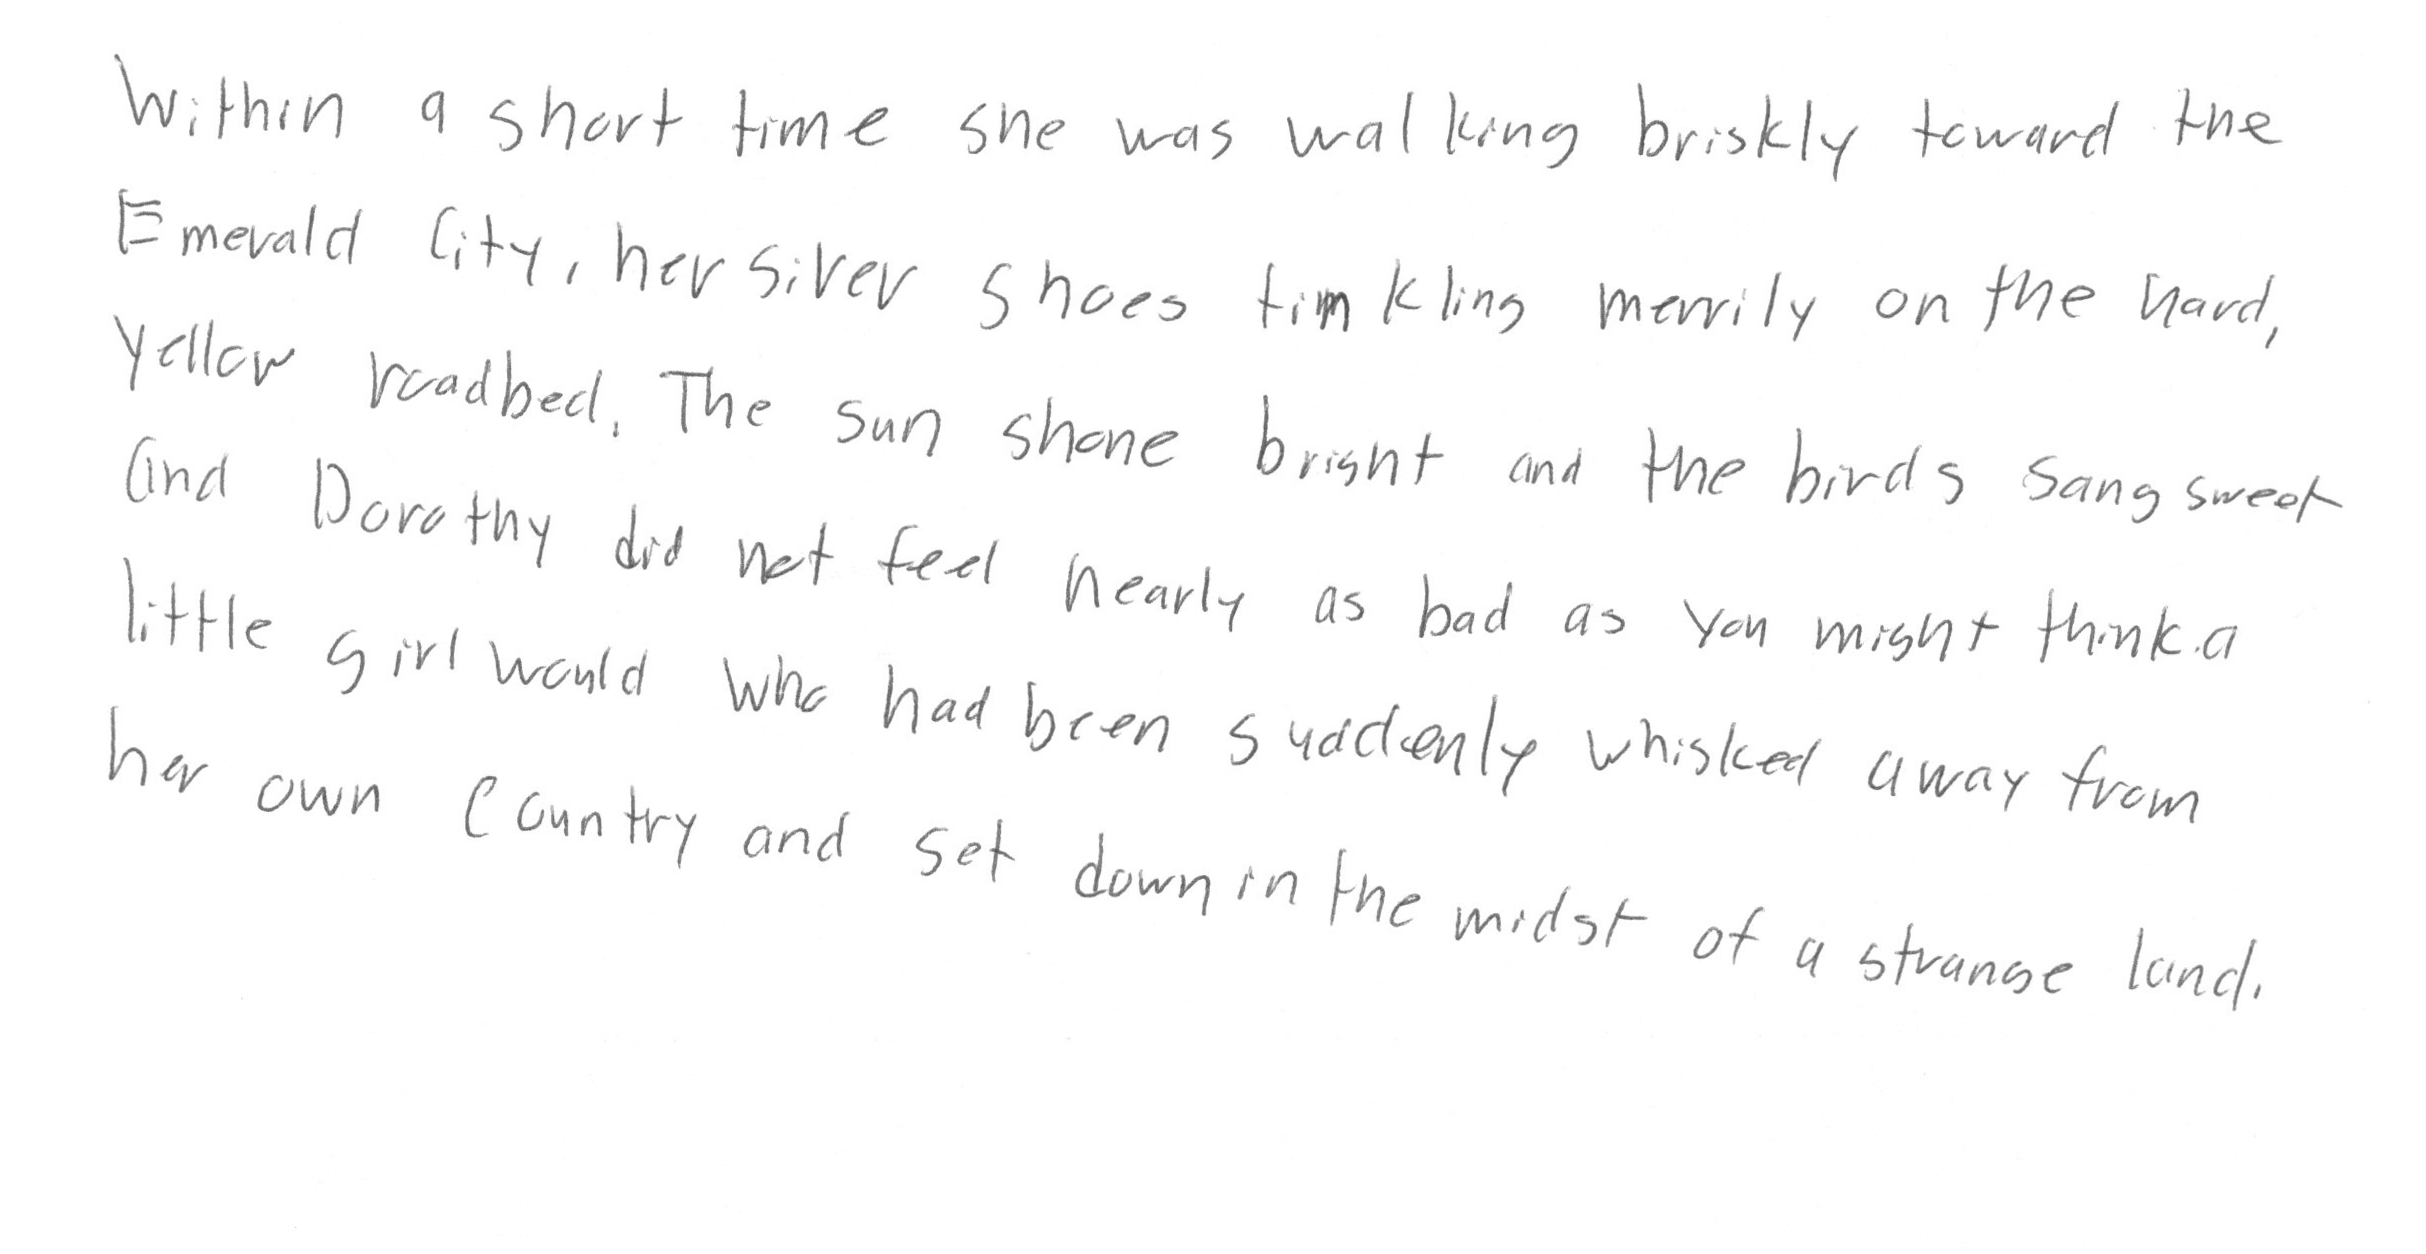 Within a short time she was walking briskly toward the
Emerald City, her silver shoes timkling merrily on the hard,
yellow roadbed. The sun shone bright and the birds sang sweet
and Dorothy did not feel nearly as bad as you might think a
little girl would who had been suddenly whisked away from
her own country and set down in the midst of a strange land.